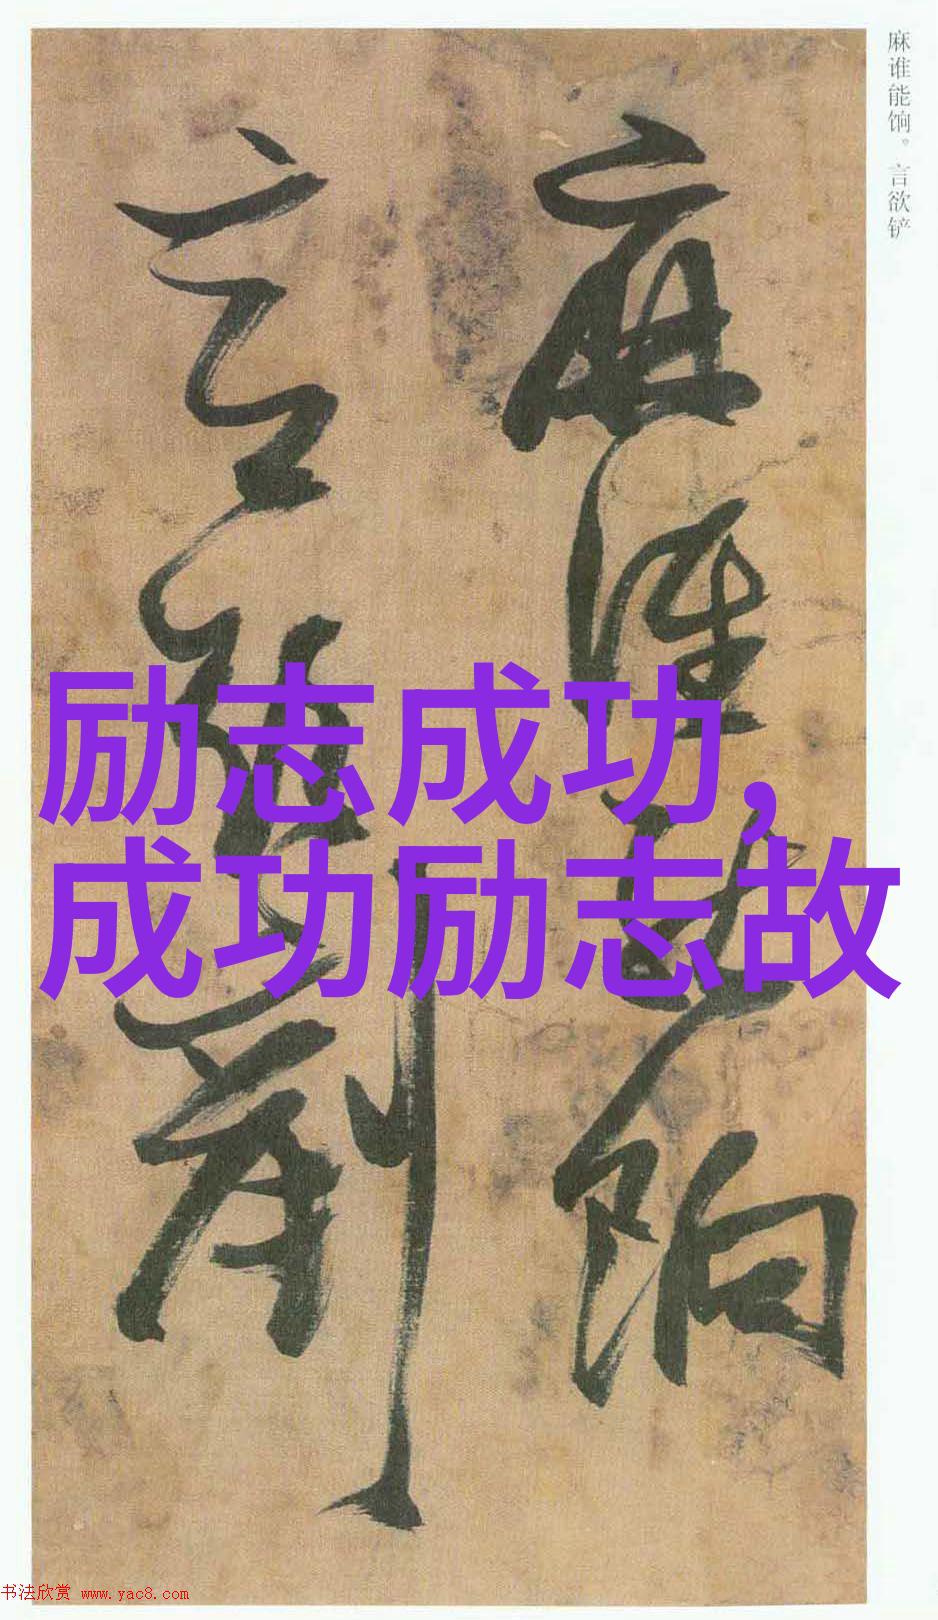 麻谁能饷。言欲铲
麻谁能饷
言欲剷
励志成功,
成功励志故
书法欣赏 www.yac8.com